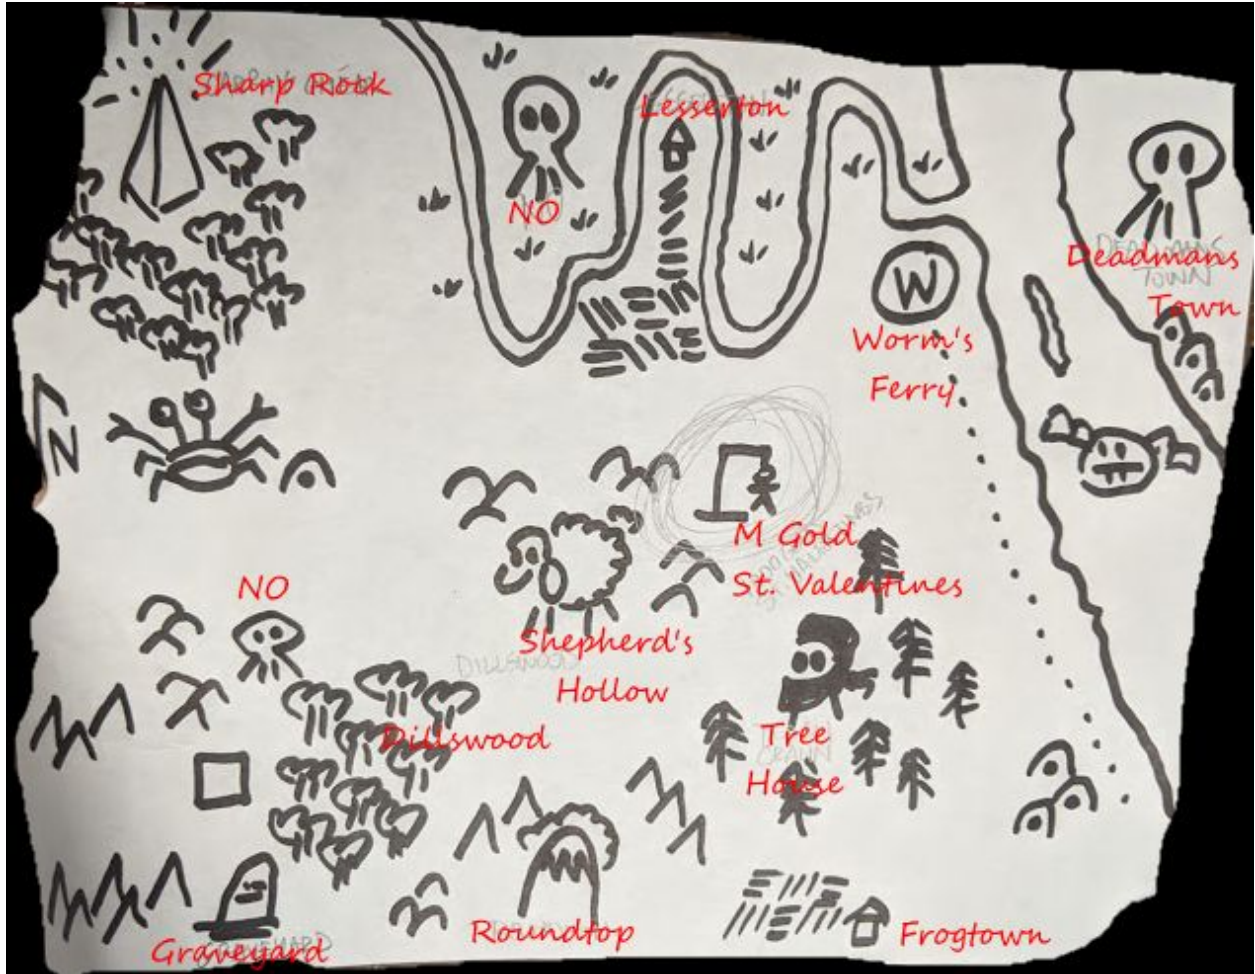 Sharp Rock
Lesserton
NO
DEADMANS
TOWN
Deadmans
Town
W
Worm's
Ferry
N
M Gold
St. Valentines
NO
Shepherd's
Hollow
DILLSWOOD
Dillswood
Tree
House
Roundtop
Frogtown
GRAVEYARD
Graveyard